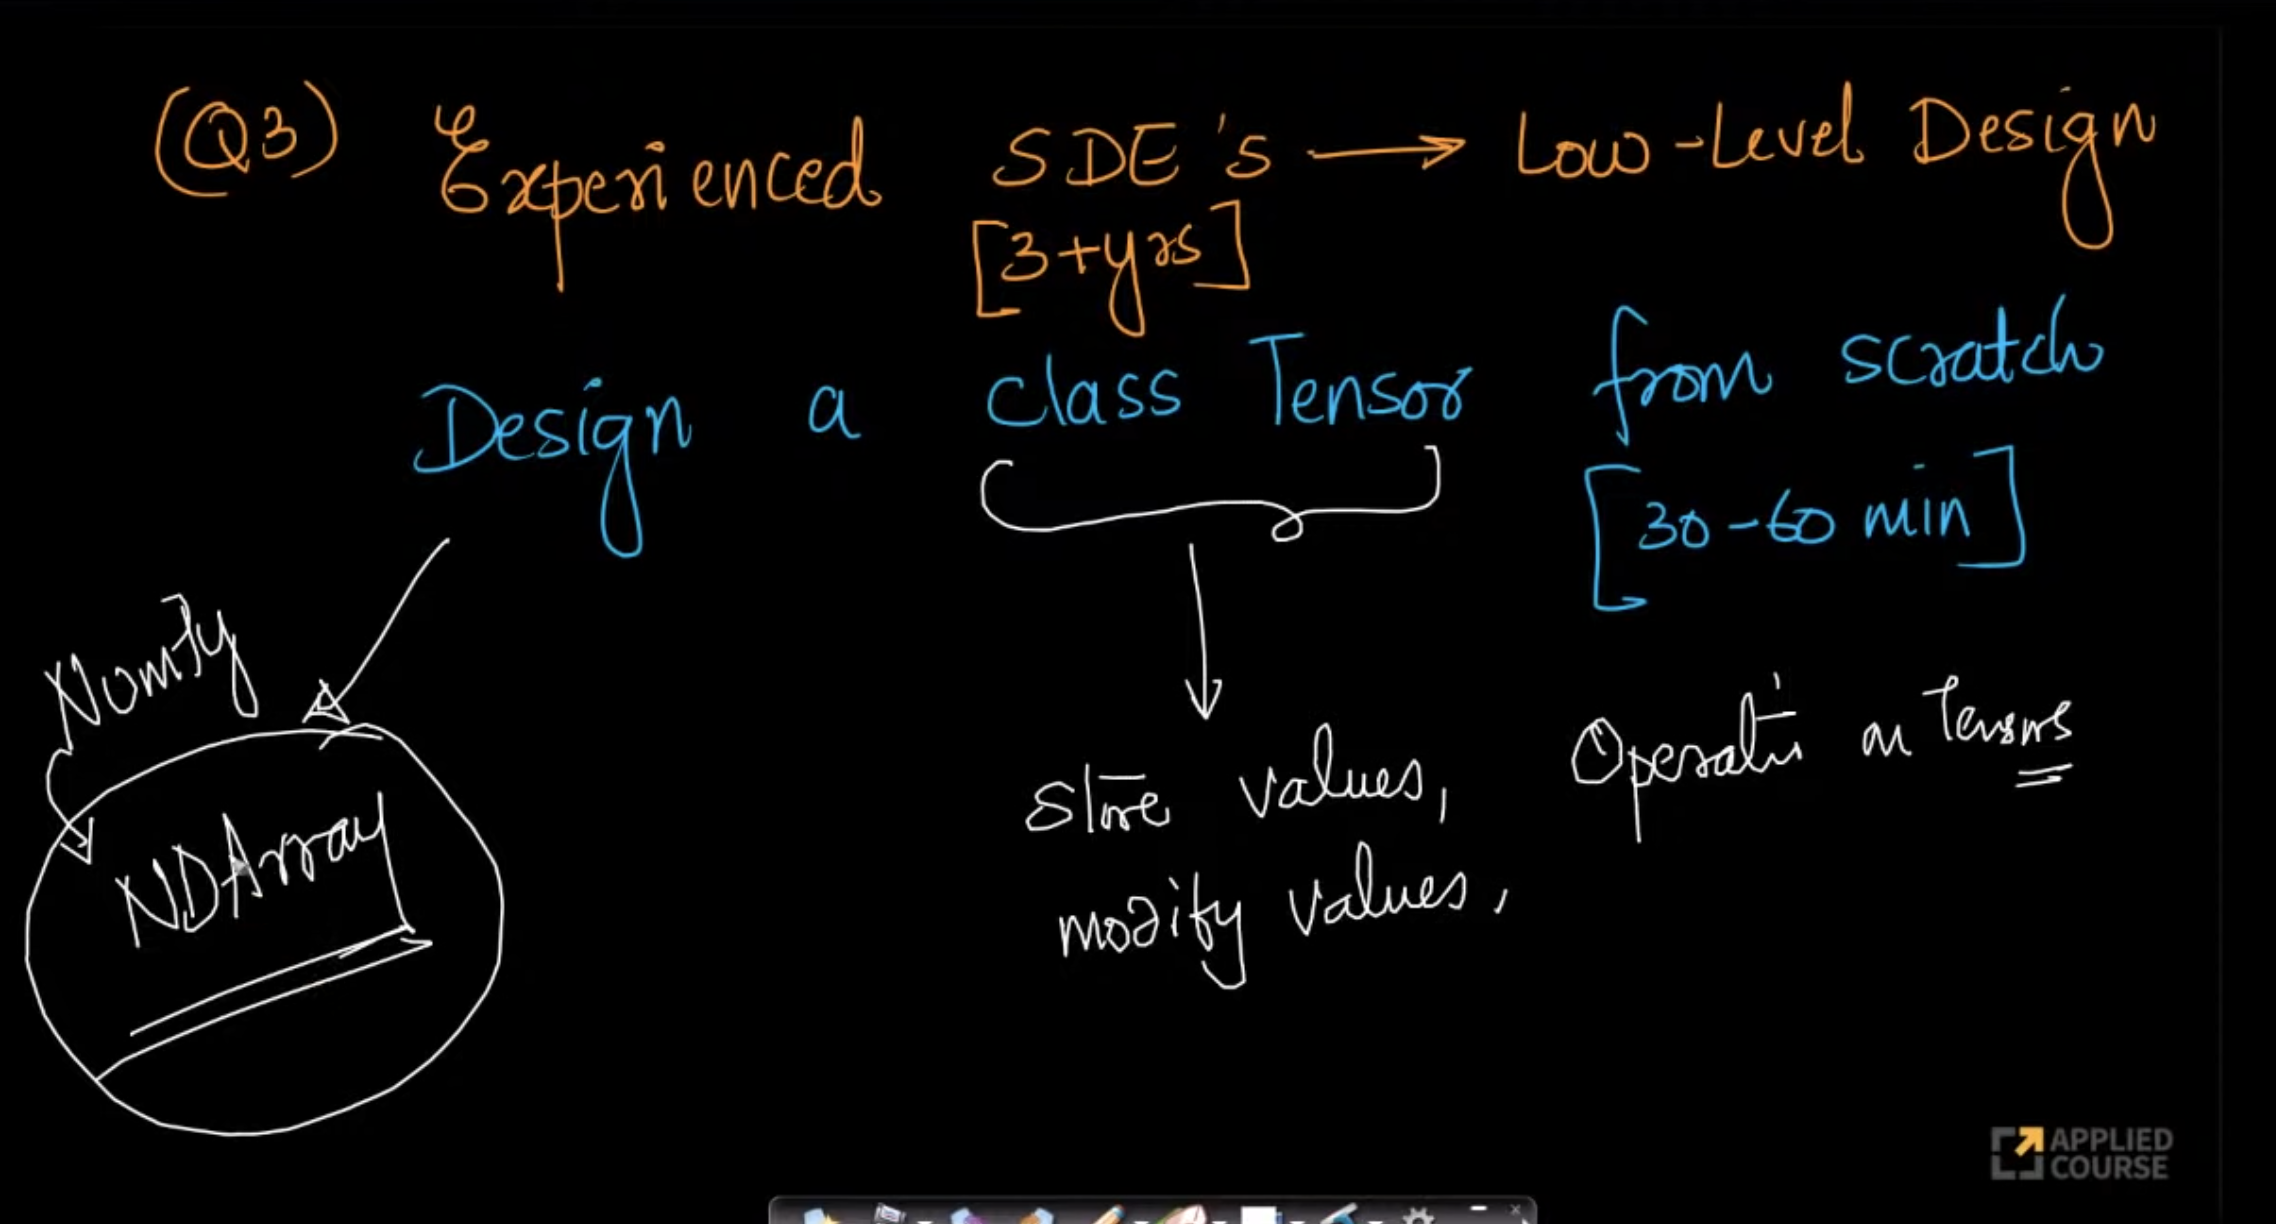 (Q3) Experienced SDE's → Low-Level Design
[3+yrs]
Design a class Tensor from scratch
[30-60 min]
Numpy
NDArray
Store values,
modify values,
Operatin on Tensors
APPLIED
COURSE